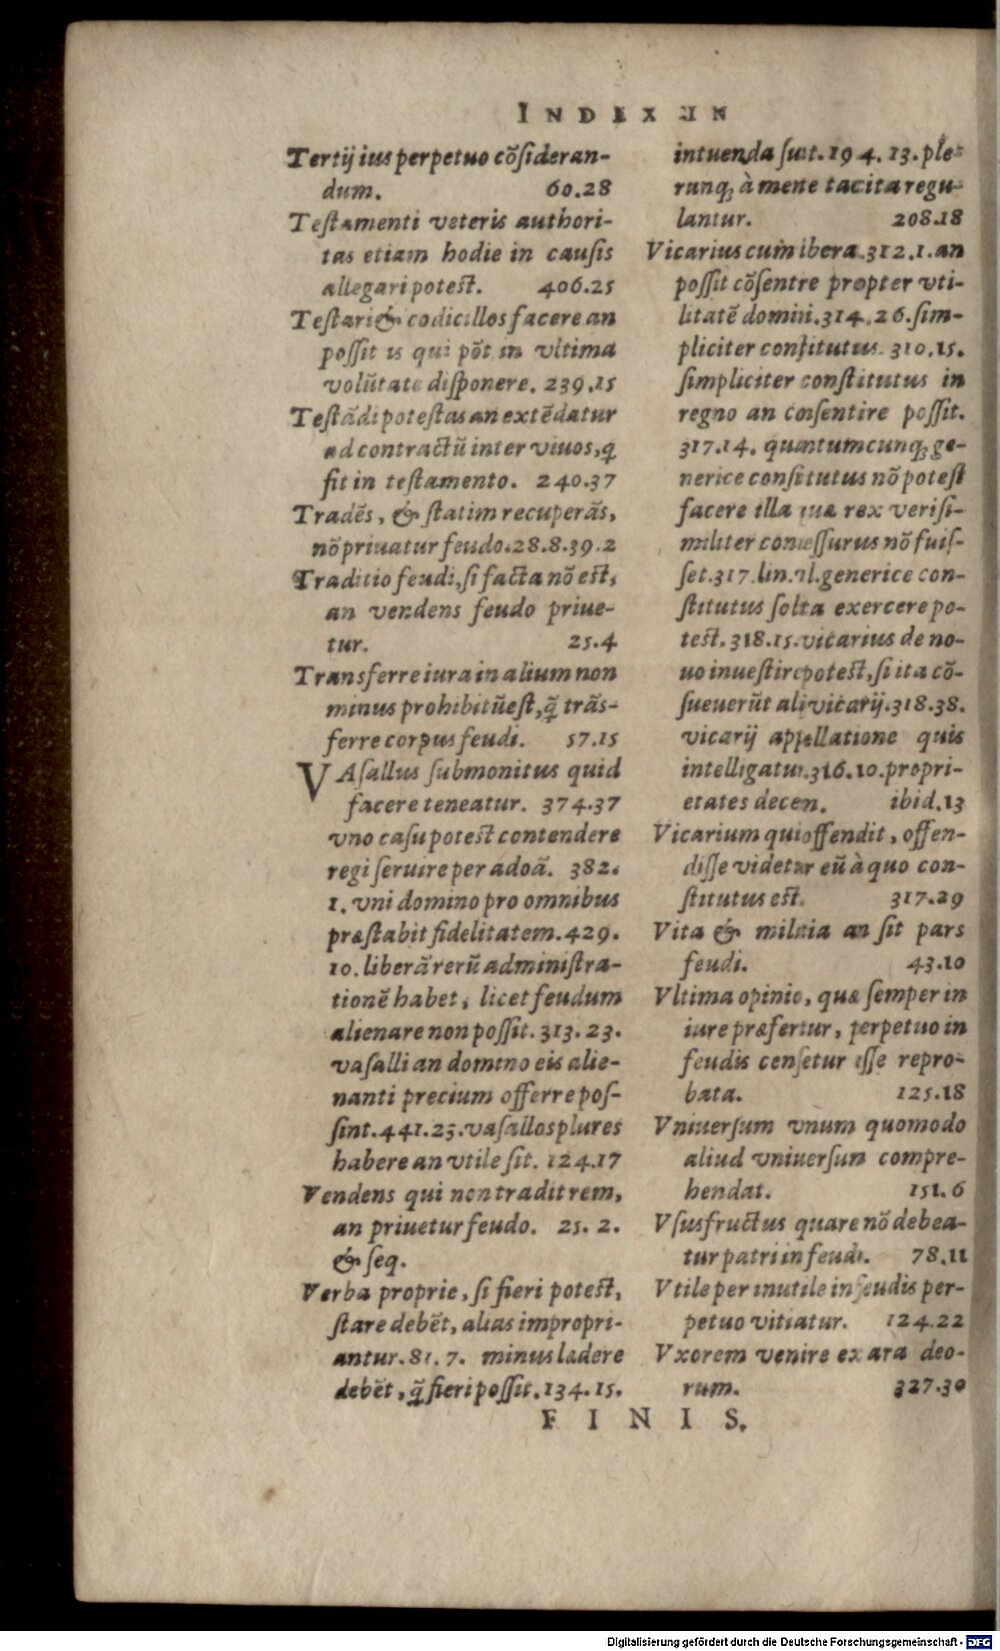 INDEX IN
Tertij ius perpetuo cõſideran-
dum. 60.28
Teſtamenti veteris authori-
tas etiam hodie in cauſis
allegari poteſt. 406.25
Teſtari & codicillos facere an
poſſit is qui põt in vltima
volũtate diſponere. 239.15
Teſtãdi poteſtas an extẽdatur
ad contractũ inter viuos, q̃
fit in teſtamento. 240.37
Tradẽs, & ſtatim recuperãs,
nõ priuatur feudo.28.8.39.2
Traditio feudi, ſi facta nõ eſt,
an vendens feudo priue-
tur. 25.4
Transferre iura in alium non
minus prohibitũ eſt, q̃ trãs-
ferre corpus feudi. 57.15
VAſallus ſubmonitus quid
facere teneatur. 374.37
vno caſu poteſt contendere
regi ſeruire per adoã. 382.
1. vni domino pro omnibus
præſtabit fidelitatem.429.
10. liberã rerũ adminiſtra-
tionẽ habet, licet feudum
alienare non poſſit. 313.23.
vaſalli an domino eis alie-
nanti precium offerre poſ-
ſint.441.23.vaſallos plures
habere an vtile ſit. 124.17
Vendens qui non tradit rem,
an priuetur feudo. 25. 2.
& ſeq.
Verba proprie, ſi fieri poteſt,
ſtare debẽt, alias impropri-
antur. 81. 7. minus ladere
debẽt, q̃ fieri poſſit. 134.15.
intuenda ſunt. 194. 13. ple-
runq; à mẽte tacita regu-
lantur. 208.18
Vicarius cum libera.312.1.an
poſſit cõſentire propter vti-
litatẽ domini.314.26.ſim-
pliciter conſtitutus. 310.15.
ſimpliciter conſtitutus in
regno an conſentire poſſit.
317.14. quantumcunq; ge-
nerice conſtitutus nõ poteſt
facere illa quæ rex veriſi-
militer conceſſurus nõ fuiſ-
ſet.317.lin. generice con-
ſtitutus ſolita exercere po-
teſt. 318.15.vicarius de no-
uo inueſtire poteſt, ſi ita cõ-
ſueuerũt alij vicarij.318.38.
vicarij appellatione quis
intelligatur.316.10.propri-
etates decen. ibid.13
Vicarium qui offendit, offen-
diſſe videtur eũ à quo con-
ſtitutus eſt. 317.29
Vita & militia an ſit pars
feudi. 43.10
Vltima opinio, quæ ſemper in
iure præfertur, perpetuo in
feudis cenſetur eſſe repro-
bata. 125.18
Vniuerſum vnum quomodo
aliud vniuerſum compre-
hendat. 151.6
Vſusfructus quare nõ debea-
tur patri in feudi. 78.11
Vtile per inutile in feudis per-
petuo vitiatur. 124.22
Vxorem venire ex ara deo-
rum. 327.30
FINIS.
Digitalisierung gefördert durch die Deutsche Forschungsgemeinschaft - DFG